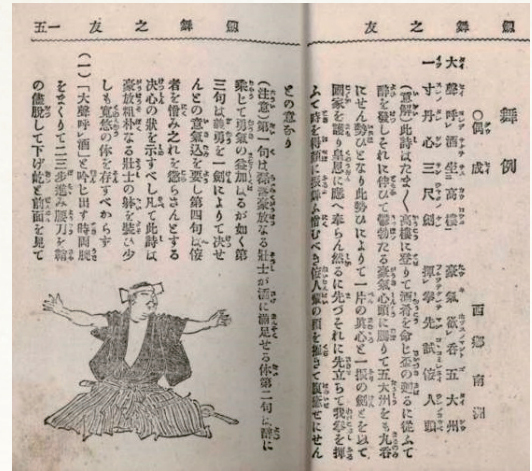 劔舞之友
舞例
○偶成 西郷南洲
大聲呼酒坐高樓 豪氣欲呑五大州
一寸丹心三尺劔 揮拳先試侫人頭
(意解)此詩はたまく高樓に登りて酒肴を命じ盃の廻るに從ふて
醉を發しそれに伴ひて欝勃たる豪氣心頭に騰りて五大州をも丸呑
にせん勢ひとなり此勢ひによりて一片の眞心と一振の劔とを以て
國家を護り皇恩に應へ奉らん然るに先づそれに先立ちて我拳を揮
ふて時を得顔に振舞ふ憎むべき侫人輩の頭を
との意なり
劔舞之友 一五
(注意)第一句は豪放なる壯士が酒に滿足せる体第二句は醉に
乘じて勇氣の益加はるが如く第
三句は義勇を一劔によりて決せ
んとの意氣込を要し第四句は侫
者を憎み之れを懲らさんとする
決心の狀を示すべし凡て此詩は
豪放粗朴なる壯士の躰を裝ひ少
しも寬悠の体を存すべからず
(一)「大聲呼酒」と吟じ出す時兩腕
をまくりて二三步進み腰刀を
の儘脫して下げ乾と前面を見て